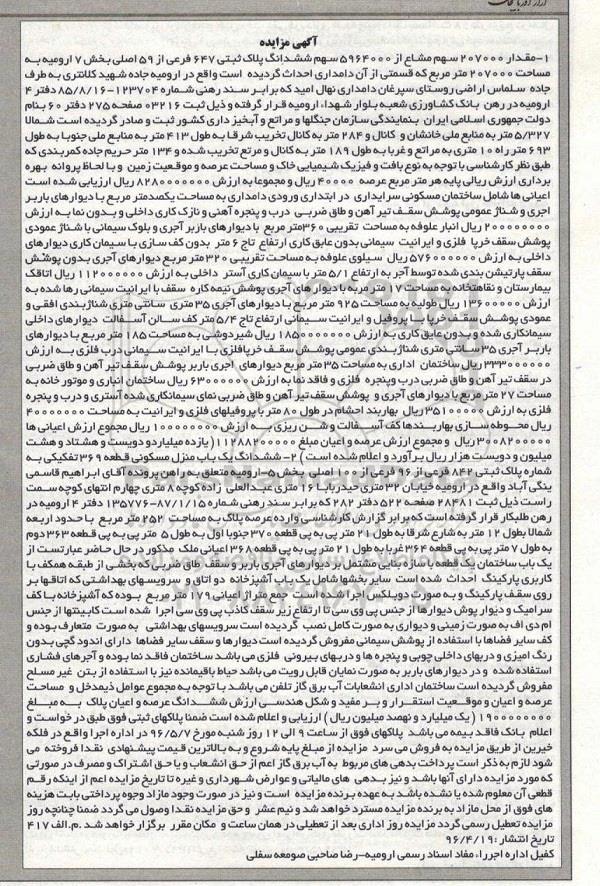 آگهی مزایده
۱-مقدار ۲۰۷۰۰۰ سهم مشاع از ۵۹۶۴۰۰۰ سهم ششدانگ پلاک ثبتی ۶۴۷ فرعی از ۵۹ اصلی بخش ۷ ارومیه به
مساحت ۲۰۷۰۰۰ متر مربع که قسمتی از آن دامداری احداث گردیده است واقع در ارومیه جاده شهید کلانتری به طرف
جاده سلماس اراضی روستای سپرغان دامداری نهال امید که برابر سند رهنی شماره ۱۲۳۷۰۴-۸۵/۸/۱۶ دفتر ۴
ارومیه در رهن بانک کشاورزی شعبه بلوار شهدا، ارومیه قرار گرفته و ذیل ثبت ۰۳۲۱۶ صفحه ۲۷۵ دفتر ۶۰ بنام
دولت جمهوری اسلامی ایران بنمایندگی سازمان جنگلها و مراتع و آبخیز داری کشور ثبت و صادر گردیده است شمالا
۵/۳۲۷ متر به منابع ملی خانشان و کانال و ۲۸۴ متر به کانال تخریب شرقا به طول ۴۱۳ متر به منابع ملی جنوبا به طول
۶۹۳ متر راه ۱۰ متری به مراتع و غربا به طول ۱۸۹ متر به کانال و مرتع تخریب شده و ۱۳۴ متر حریم جاده کمربندی که
طبق نظر کارشناسی با توجه به نوع بافت و فیزیک شیمیایی خاک و مساحت عرصه و موقعیت زمین و با لحاظ پروانه بهره
برداری ارزش ریالی پایه هر متر مربع عرصه ۴۰۰۰۰ ریال و مجموعا به ارزش ۸۲۸۰۰۰۰۰۰۰ ریال ارزیابی شده است
اعیانی ها شامل ساختمان مسکونی سرایداری در ابتدای ورودی دامداری به مساحت یکصدمتر مربع با دیوارهای باربر
اجری و شناژ عمومی پوشش سقف تیر آهن و طاق ضربی درب و پنجره آهنی و نازک کاری داخلی و بدون نما به ارزش
۲۰۰۰۰۰۰۰۰ ریال انبار علوفه به مساحت تقریبی ۳۶۰متر مربع با دیوارهای باربر آجری و بلوک سیمانی با شناژ عمودی
پوشش سقف خرپا فلزی و ایرانیت سیمانی بدون عایق کاری ارتفاع تاج ۶ متر بدون کف سازی با سیمان کاری دیوارهای
داخلی به ارزش ۵۷۶۰۰۰۰۰۰ ریال سیلوی علوفه به مساحت تقریبی ۳۲۰متر مربع دیوارهای آجری بدون پوشش
سقف پارتیشن بندی شده توسط آجر به ارتفاع ۵/۱ متر با سیمان کاری آستر داخلی به ارزش ۱۱۲۰۰۰۰۰۰ ریال اتاقک
بیمارستان و نقاهتخانه به مساحت ۱۷متر مربع با دیوار های آجری پوشش نیمه کاره سقف با ایرانیت سیمانی رها شده به
ارزش ۱۳۶۰۰۰۰۰ ریال طولیه به مساحت ۹۲۵ متر مربع با دیوارهای آجری ۳۵ متری سانتی متری شناژ بندی افقی و
عمودی پوشش سقف خرپا با پروفیل و ایرانیت سیمانی ارتفاع تاج ۵/۴ متر کف سالن آسفالت دیوارهای داخلی
سیمانکاری شده و بدون عایق کاری به ارزش ۱۸۵۰۰۰۰۰۰۰ ریال شیردوشی به مساحت ۱۸۵ متر مربع با دیوارهای
باربر آجری ۳۵ سانتی متری شناژ بندی عمومی پوشش سقف خرپافلزی با ایرانیت سیمانی درب فلزی به ارزش
۳۳۳۰۰۰۰۰۰ ریال ساختمان اداری به مساحت ۳۵ متر مربع دیوارهای آجری باربر پوشش سقف تیر آهن و طاق ضربی
در سقف تیر آهن و طاق ضربی درب وپنجره فلزی و فاقد نما به ارزش ۶۳۰۰۰۰۰۰ ریال ساختمان انباری و موتور خانه به
مساحت ۲۷ متر مربع با دیوارهای آجری و پوشش سقف تیر آهن و طاق ضربی نمای سیمانکاری شده آستری و درب و پنجره
فلزی به ارزش ۳۵۱۰۰۰۰۰ ریال بهاربند احشام در طول ۸۰ متر با پروفیلهای فلزی و ایرانیت به مساحت ۴۰۰۰۰۰۰۰
ریال محوطه سازی بهاربندها کف آسفالت و شن ریزی به ارزش ۱۰۰۰۰۰۰۰۰ ریال مجموع ارزش اعیانی ها
۳۰۰۸۲۰۰۰۰۰ ریال و مجموع ارزش عرصه و اعیان مبلغ ۱۱۲۸۸۲۰۰۰۰۰( یازده میلیارد و دویست و هشتاد و هشت
میلیون و دویست هزار ریال برآورد و اعلام شده است ) ۲- ششدانگ یک باب منزل مسکونی قطعه ۳۶۹ تفکیکی به
شماره پلاک ثبتی ۸۴۲ فرعی از ۹۶ فرعی از ۱۰۰ اصلی بخش ۵-ارومیه متعلق به راهن پرونده آقای ابراهیم قاسمی
ینگی آباد واقع در ارومیه خیابان ۳۲ متری حیدرباب ۱۶ متری عبدالعلی زاده کوچه ۸ متری چهارم انتهای کوچه سمت
راست ذیل ثبت ۲۸۴۸۱ صفحه ۵۲۲ دفتر ۲۸۲ که برابر سند رهنی شماره ۸۷/۱/۱۵-۱۳۵۷۷۶ دفتر ۴ ارومیه در
رهن طلبکار قرار گرفته است که برابر گزارش کارشناسی وارده عرصه پلاک به مساحت ۲۵۲ متر مربع با حدود اربعه
شمالا بطول ۱۲ متر به شارع شرقا به طول ۲۱ متر پی به پی قطعه ۳۷۰ جنوبا اول به طول ۵ متر پی به پی قطعه ۳۶۳ دوم
به طول ۷ متر پی به پی قطعه ۳۶۴ غربا به طول ۲۱ متر پی به پی قطعه ۳۶۸ اعیانی ملک مذکور در حال حاضر عبارتست از
یک باب ساختمان یک قطعه با سازه بنایی مشتمل بر دیوارهای آجری باربر و سقف طاق ضربی که بخشی از طبقه همکف با
کاربری پارکینگ احداث شده است سایر بخشها شامل یک باب آشپزخانه دو اتاق و سرویسهای بهداشتی که اتاقها بر
روی سقف پارکینگ و به صورت دوبلکس اجرا شده است جمع متراژ اعیانی ۱۷۹ متر مربع بوده که آشپزخانه با کف
سرامیک و دیوار پوش دیوارها از جنس پی وی سی تا ارتفاع زیر سقف کاذب پی وی سی اجرا شده است کابینتها از جنس
ام دی اف به صورت زمینی و دیواری به صورت کامل نصب گردیده است سرویسهای بهداشتی به صورت متعارف بوده و
کف سایر فضاها با استفاده از پوشش سیمانی مفروش گردیده است دیوارها و سقف سایر فضاها دارای اندود گچی بدون
رنگ امیزی و دربهای داخلی چوبی و پنجره ها و دربهای بیرونی فلزی می باشد ساختمان فاقد نما بوده و آجرهای فشاری
استفاده شده و در دیوارهای باربر به صورت نمایان قابل رویت می باشد حیاط باقیمانده نیز با استفاده از بتن غیر مسلح
مفروش گردیده است ساختمان اداری انشعابات آب برق گاز تلفن می باشد با توجه به مجموع عوامل ذیمدخل و مساحت
عرصه و اعیان و موقعیت استقرار و بر مفید و شکل هندسی ارزش ششدانگ عرصه و اعیان پلاک به مبلغ
۱۹۰۰۰۰۰۰۰۰ ( یک میلیارد و نهصد میلیون ریال ) ارزیابی و اعلام شده است ضمنا پلاکهای ثبتی فوق طبق درخواست و
اعلام بانک فاقد بیمه می باشد پلاکهای فوق از ساعت ۹ الی ۱۲ روز شنبه مورخ ۹۶/۵/۷ در اداره اجرا واقع در فلکه
خیرین از طریق مزایده به فروش می سرد مزایده از مبلغ پایه شروع و به بالاترین قیمت پیشنهادی نقدا فروخته می
شود لازم به ذکر است پرداخت بدهی های مربوط به آب برق گاز اعم از حق انشعاب و یا حق اشتراک و مصرف در صورتی
که مورد مزایده دارای آنها باشد و نیز بدهی های مالیاتی و عوارض شهرداری و غیره تا تاریخ مزایده اعم از اینکه رقم
قطعی آن معلوم شده یا نشده باشد به عهده برنده مزایده است و نیز در صورت وجود مازاد وجوه پرداختی بابت هزینه
های فوق از محل مازاد به برنده مزایده مسترد خواهد شد و نیم عشر و حق مزایده نقدا وصول می گردد ضمنا چنانچه روز
مزایده تعطیل رسمی گردد مزایده روز اداری بعد از تعطیلی در همان ساعت و مکان مقرر برگزار خواهد شد .م.الف ۴۱۷
تاریخ انتشار :۹۶/۴/۱۹
کفیل اداره اجرراء مفاد اسناد رسمی ارومیه-رضا صاحبی صومعه سفلی